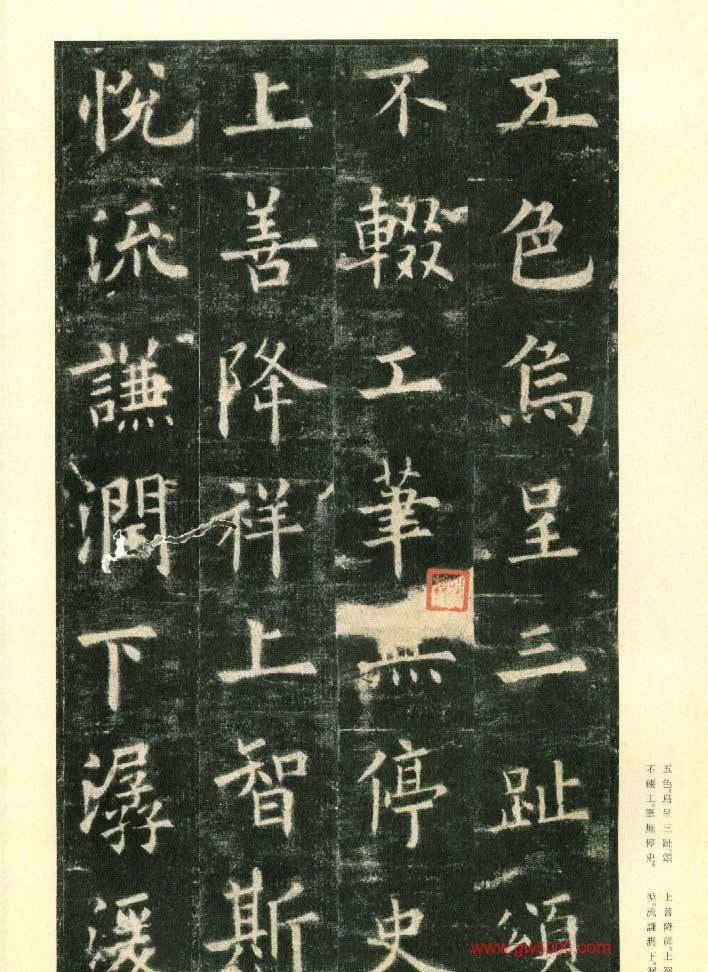 五色烏呈三趾頌
不輟工筆無停史
上善降祥上智斯
悅流謙潤下潺湲
五色。烏呈三趾。頌
不輟工。筆無停史。
上善降祥。上
悅。流謙潤下。